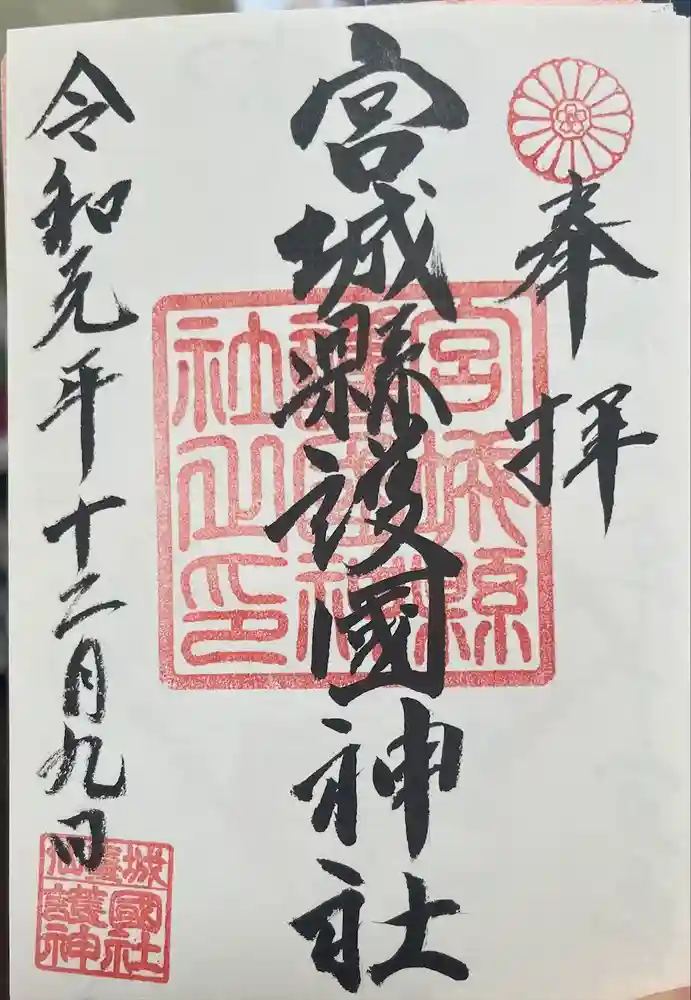 奉拝
宮城縣護國神社
宮城縣護國神社之印
令和元年十二月九日
仙臺城
護國神社